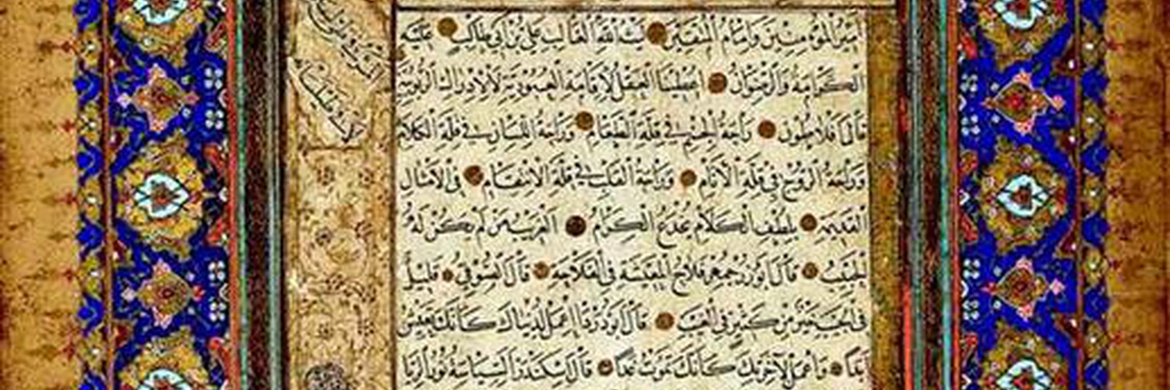 أمير المؤمنين وإمام المتقين ليث الله الغالب علي بن أبي طالب عليه
الكرامة والرضوان أعطينا العقل لإقامة العبودية لا لإدراك الربوبية
قال أفلاطون راحة الجسم في قلة الطعام وراحة اللسان في قلة الكلام
وراحة الروح في قلة الأنام وراحة القلب في قلة الانتقام في الأمثال
القديمة بلطيف الكلام يخدع الكرام الغريب من لم يكن له
حبيب قال فلاح المعيشة في الفلاحة قال الصوفي قليل
في الجيب خير من كثير في الغيب قال أبو دردا اعمل لدنياك كأنك تعيش
أبدا واعمل لآخرتك كأنك تموت غدا قال اسكندر السياسة